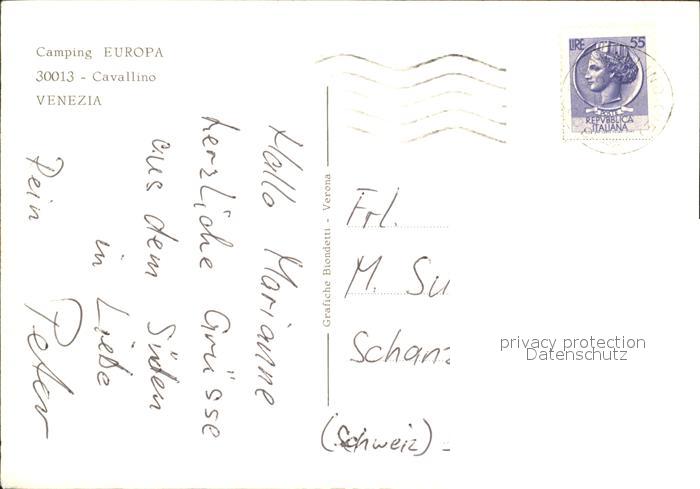 Camping EUROPA
30013 - Cavallino
VENEZIA
Hallo Marianne
herzliche Grüsse
aus dem Süden
in Liebe
Dein Peter
Grafiche Biondetti - Verona
LIRE 55
REPVBBLICA
ITALIANA
Frl.
M. Su
Schanz
(Schweiz)
privacy protection
Datenschutz